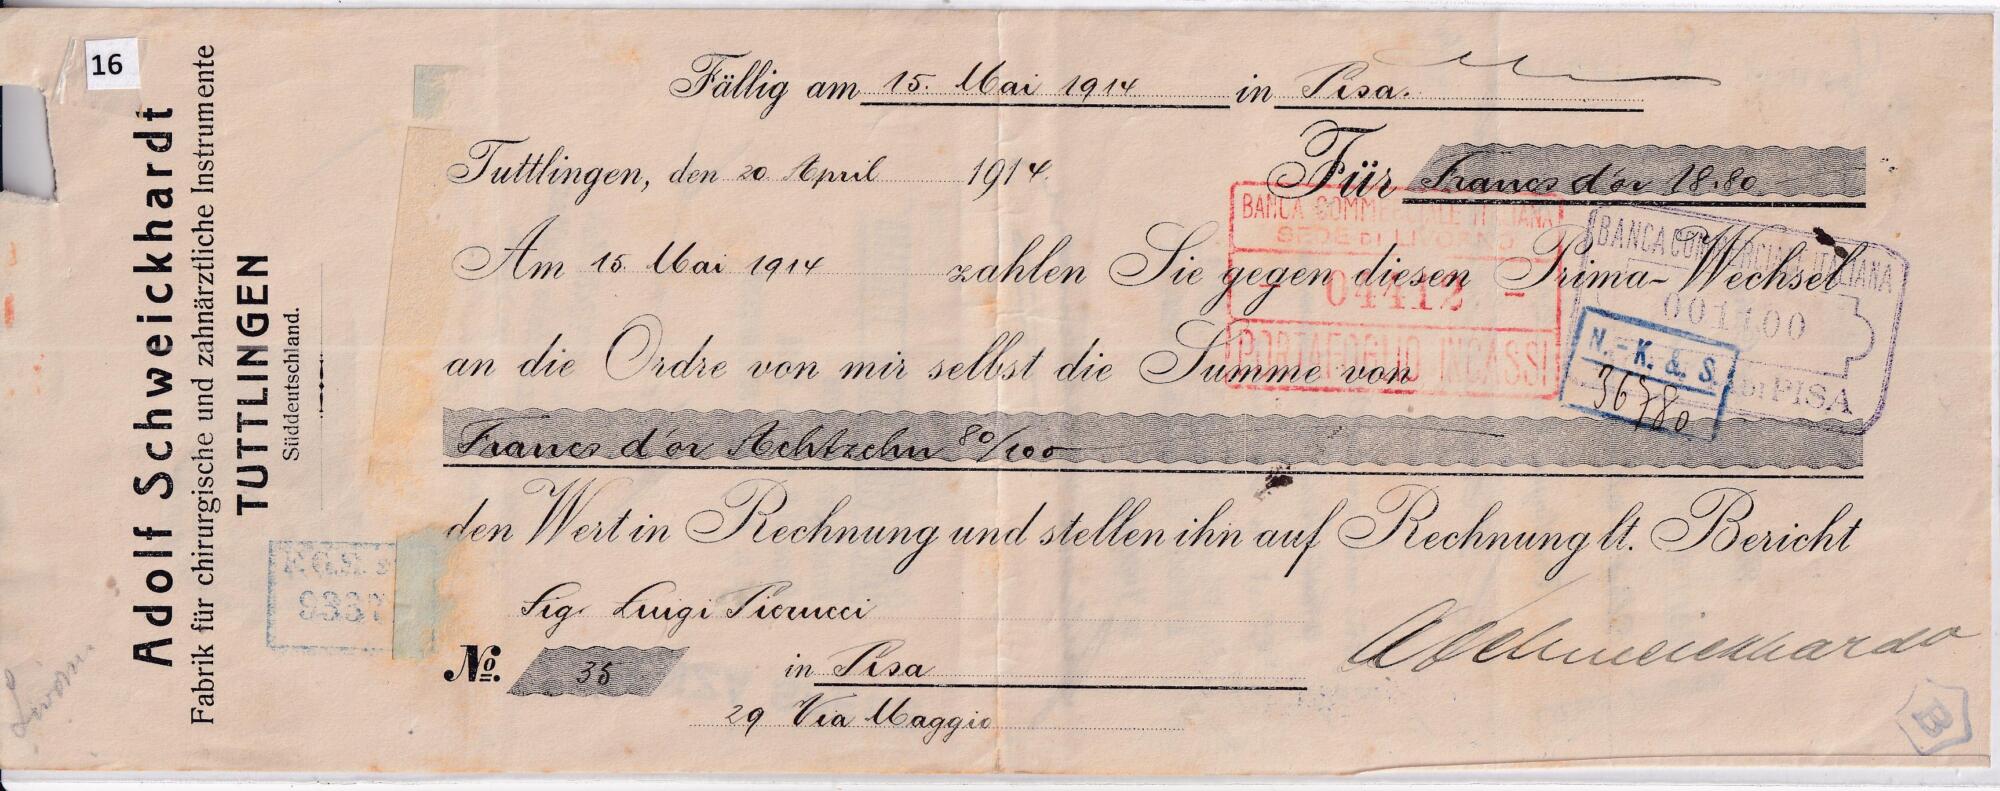 16
Adolf Schweickhardt
Fabrik für chirurgische und zahnärztliche Instrumente
TUTTLINGEN
Süddeutschland.
Fällig am 15. Mai 1914 in Pisa.
Tuttlingen, den 20 April 1914.
Für Francs d'or 18.80
Am 15 Mai 1914 zahlen Sie gegen diesen Prima-Wechsel
an die Ordre von mir selbst die Summe von
Francs d'or Achtzehn 80/100
den Wert in Rechnung und stellen ihn auf Rechnung lt. Bericht
Sig. Luigi Pierucci
No. 35 in Pisa
29 Via Maggio
ASchweickhardt
BANCA COMMERCIALE ITALIANA
SEDE DI LIVORNO
- 04412 -
PORTAFOGLIO INCASSI
BANCA COMMERCIALE ITALIANA
001100
DI PISA
N.-K. & S.
36780
9337
B